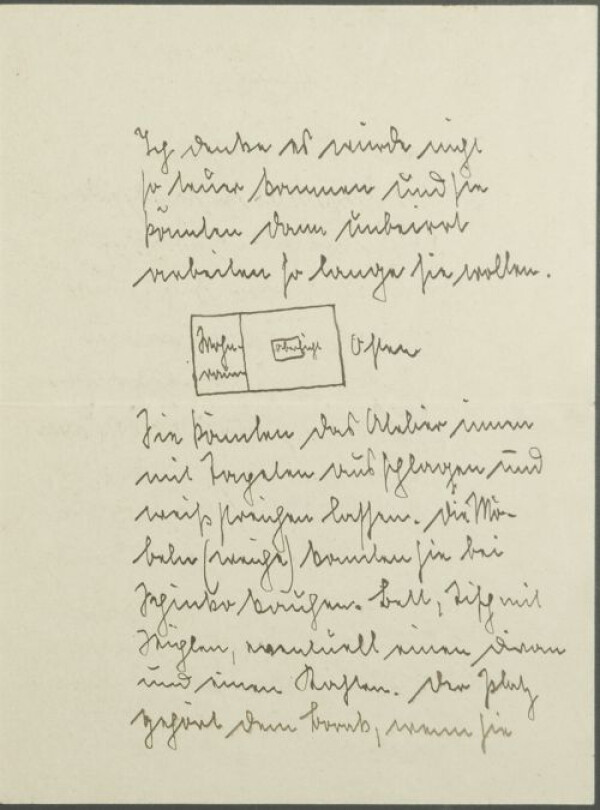 Ich denke es würde nicht
so teuer kommen und sie
könnten dann unbeirrt
arbeiten so lange sie wollen.
Wohn-
raum
Oberlicht
Osten
Sie könnten das Atelier innen
mit Tapeten ausschlagen und
weiß streichen lassen. Die Mö-
beln (weiche) könnten sie bei
kaufen. Bett, Tisch mit
Stühlen, eventuell einen Divan
und einen Kasten. Der Platz
gehört dem wenn sie